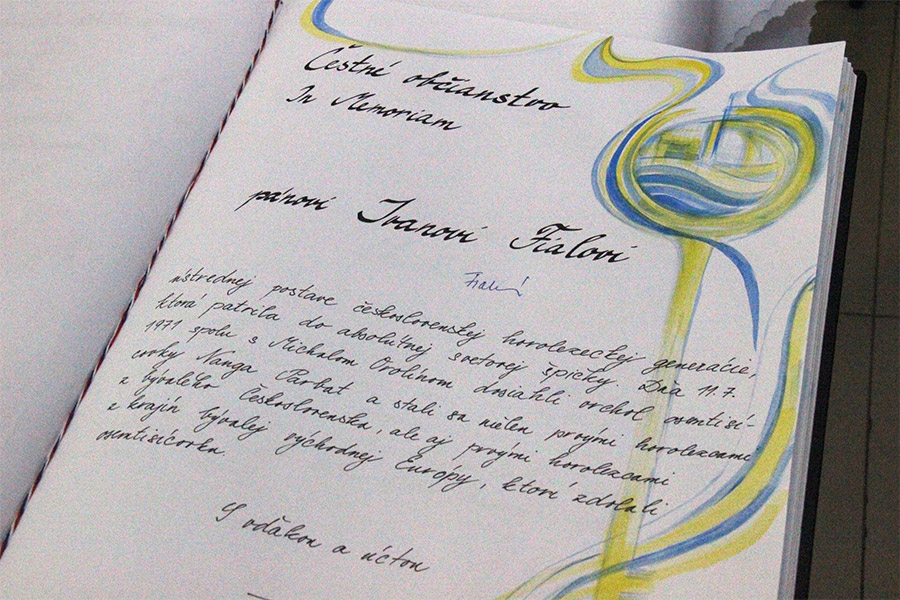 Čestné občianstvo
In Memoriam
pánovi Ivanovi Fialovi
ústrednej postave československej horolezeckej generácie,
ktorá patrila do absolútnej svetovej špičky. Dňa 11.7.
1971 spolu s Michalom Orolínom dosiahli vrchol osemtisí-
covky Nanga Parbat a stali sa nielen prvými horolezcami
z bývalého Československa, ale aj prvými horolezcami
z krajín bývalej východnej Európy, ktorí zdolali
osemtisícovku.
S vďakou a úctou